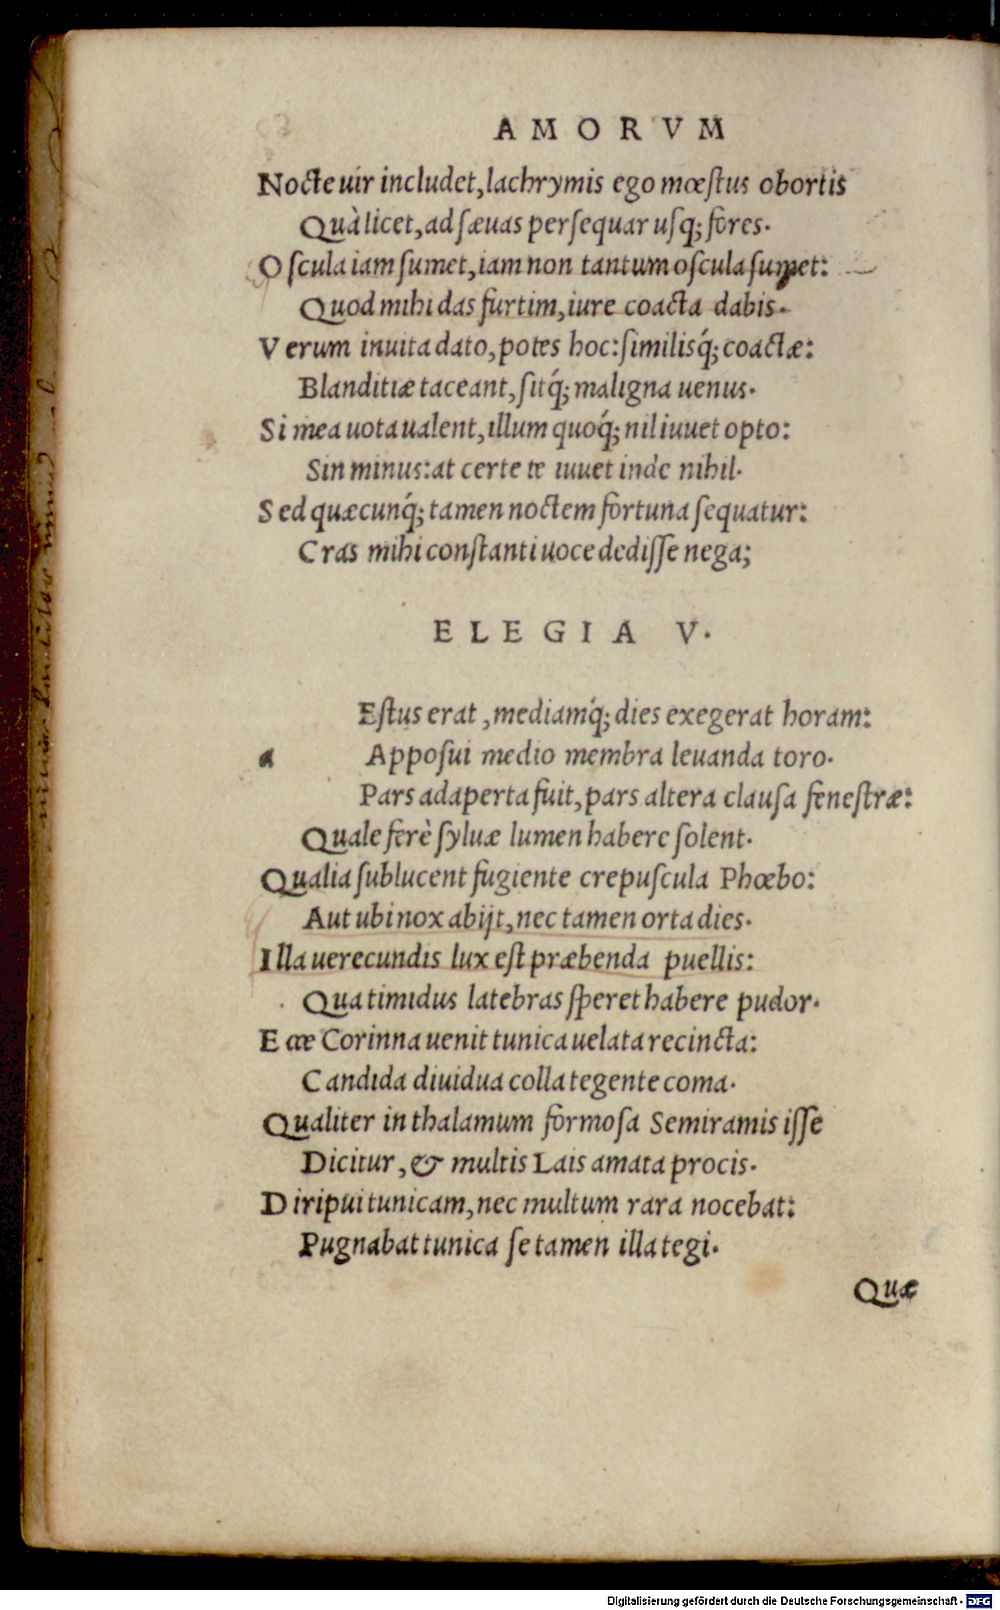 AMORVM
Nocte uir includet, lachrymis ego mœſtus obortis
Quà licet, ad ſæuas perſequar uſq; fores.
Oſcula iam ſumet, iam non tantum oſcula ſumet:
Quod mihi das furtim, iure coacta dabis.
Verum inuita dato, potes hoc: ſimilisq́; coactæ:
Blanditiæ taceant, ſitq́; maligna uenus.
Si mea uota ualent, illum quoq́; nil iuuet opto:
Sin minus: at certe te iuuet inde nihil.
Sed quæcunq́; tamen noctem fortuna ſequatur:
Cras mihi conſtanti uoce dediſſe nega;
ELEGIA V.
Eſtus erat, mediamq́; dies exegerat horam:
a Appoſui medio membra leuanda toro.
Pars adaperta fuit, pars altera clauſa feneſtræ:
Quale ferè ſyluæ lumen habere ſolent.
Qualia ſublucent fugiente crepuſcula Phœbo:
Aut ubi nox abijt, nec tamen orta dies.
Illa uerecundis lux eſt præbenda puellis:
Qua timidus latebras ſperet habere pudor.
Ecce Corinna uenit tunica uelata recincta:
Candida diuidua colla tegente coma.
Qualiter in thalamum formoſa Semiramis iſſe
Dicitur, & multis Lais amata procis.
Diripui tunicam, nec multum rara nocebat:
Pugnabat tunica ſe tamen illa tegi.
Quæ
Digitalisierung gefördert durch die Deutsche Forschungsgemeinschaft - DFG